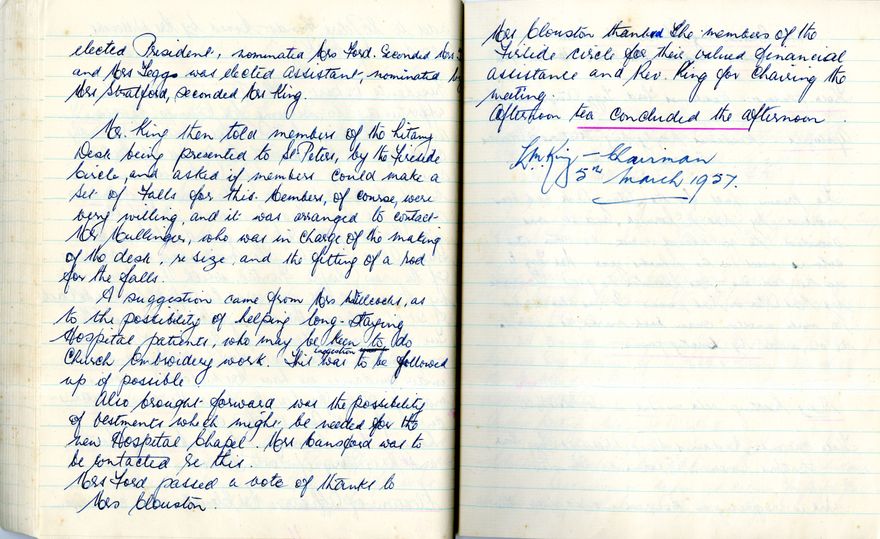 elected President, nominated Mrs Ford. Seconded Mrs
and Mrs Feggs was elected Assistant, nominated by
Mrs Stratford, Seconded Mrs King.
Mr. King then told members of the Litany
Desk being presented to St Peters, by the Fireside
Circle, and asked if members could make a
set of Falls for this. Members, of course, were
very willing, and it was arranged to contact
Mr Mullinger, who was in charge of the making
of the desk, re size, and the fitting of a rod
for the falls.
A suggestion came from Mrs Willcocks, as
to the possibility of helping long-staying
Hospital patients, who may be keen to do
Church Embroidery work. This suggestion was to be followed
up if possible
Also brought forward was the possibility
of vestments which might, be needed for the
new Hospital Chapel. Mrs Cansford was to
be contacted re this.
Mrs Ford passed a vote of thanks to
Mrs Clouston.
Mrs Clouston thanked the members of the
Fireside circle for their valued financial
assistance and Rev. King for Chairing the
meeting.
Afternoon tea concluded the afternoon.
L.M. King - Chairman
5th March 1957.